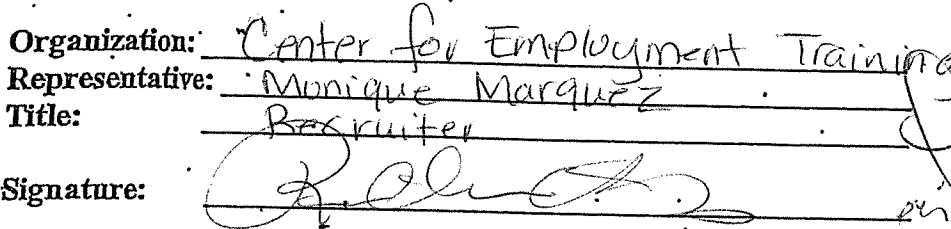 Organization: Center for Employment Training
Representative: Monique Marquez
Title: Recruiter
Signature: